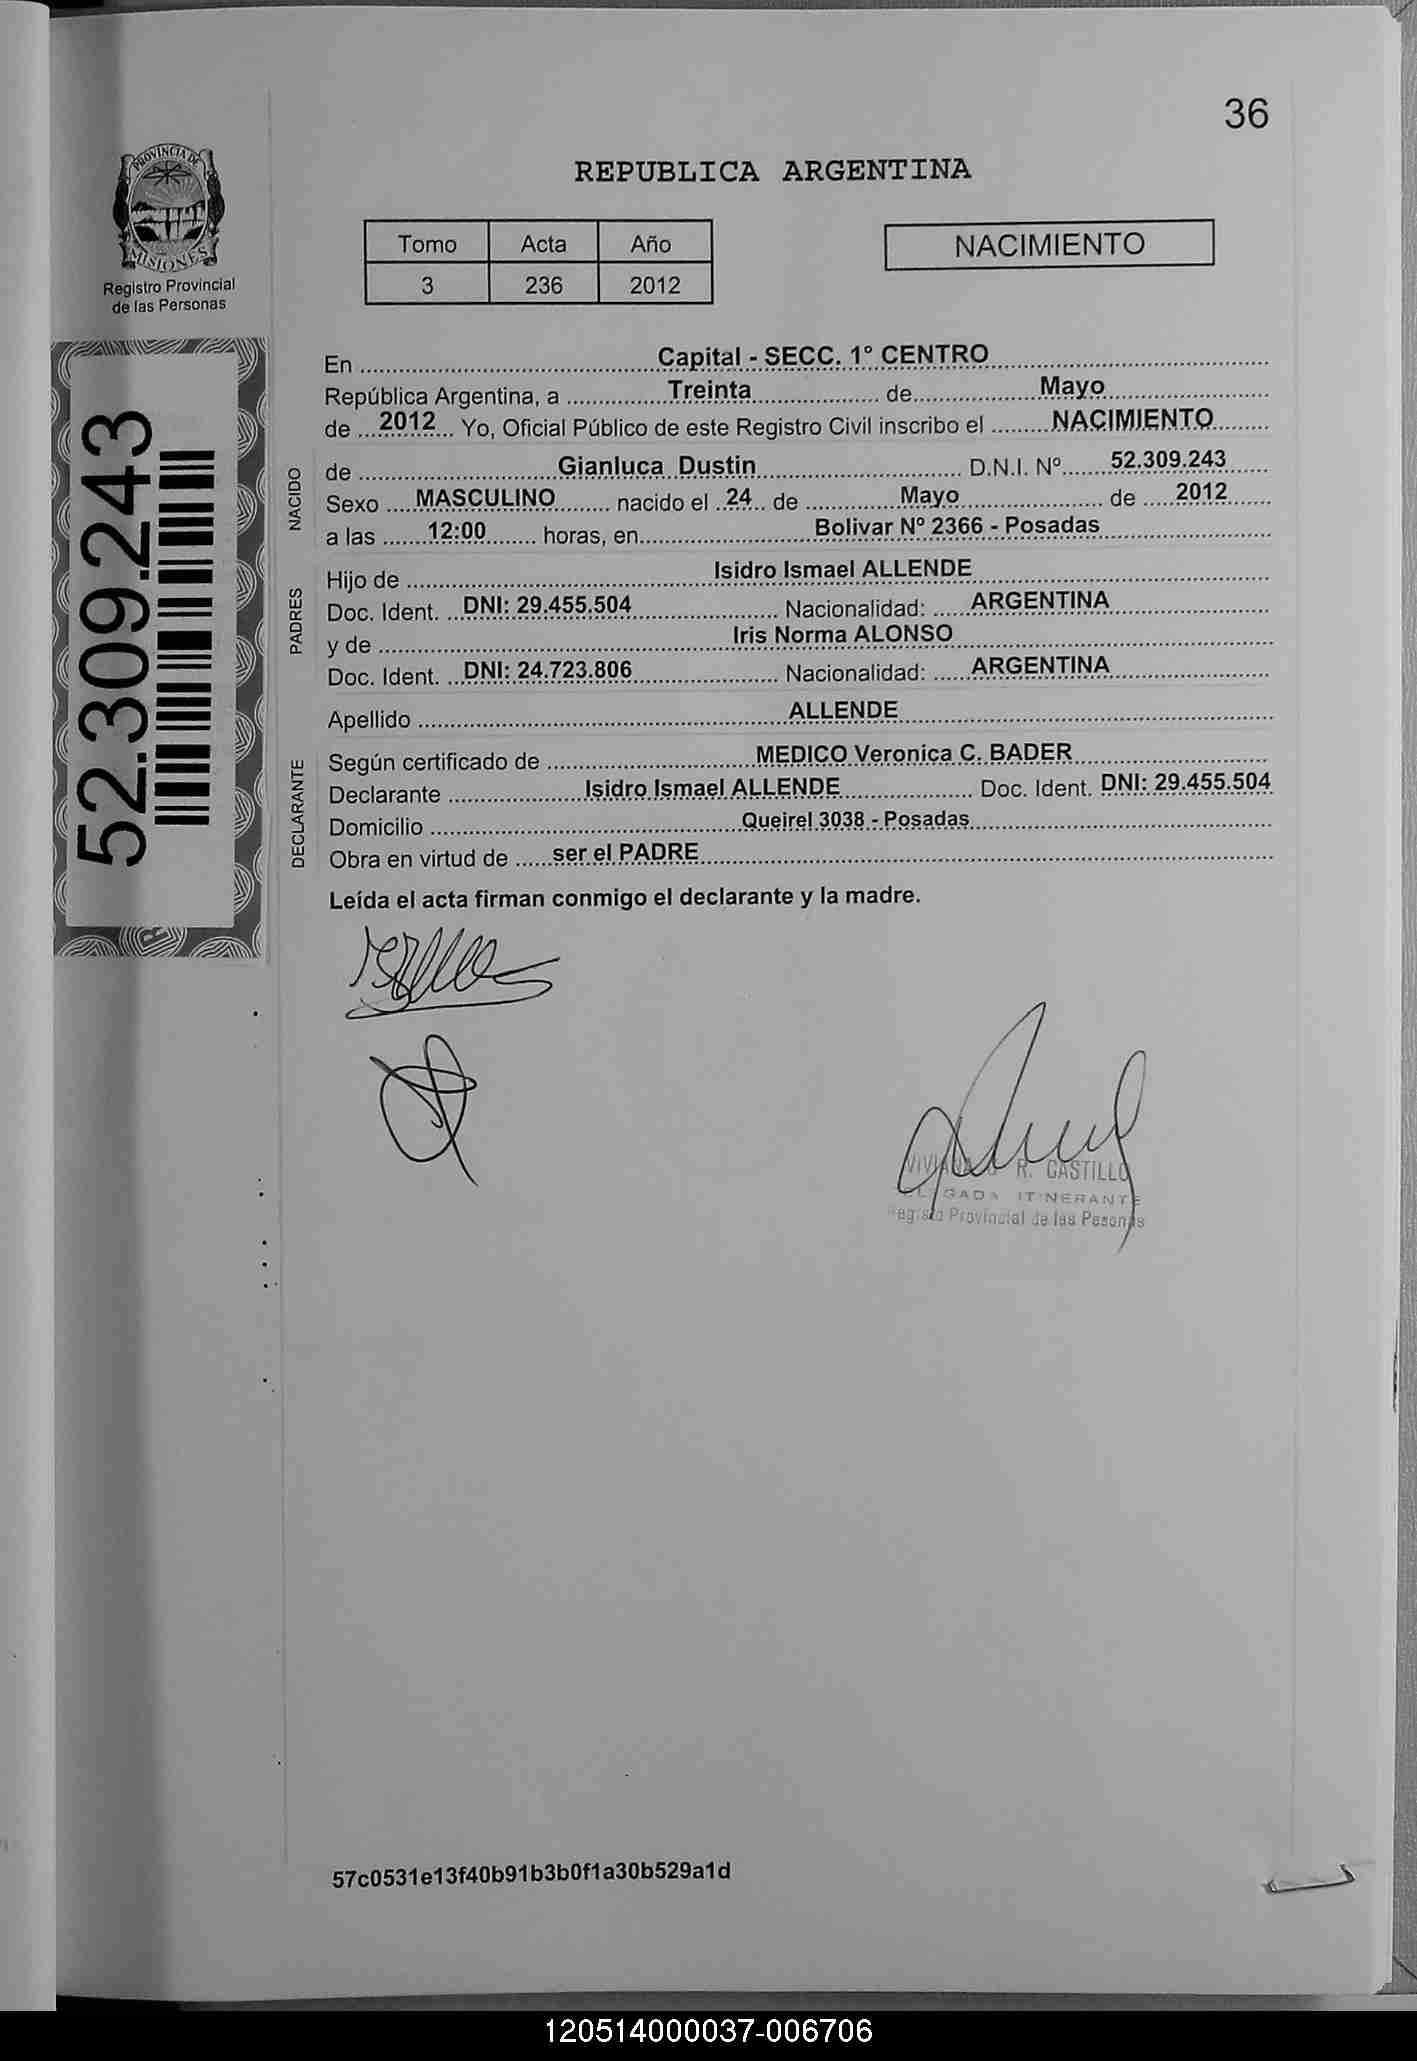 36
PROVINCIA DE
MISIONES
Registro Provincial
de las Personas
REPUBLICA ARGENTINA
Tomo Acta Año
3 236 2012
NACIMIENTO
52.309.243
En Capital - SECC. 1° CENTRO
República Argentina, a Treinta de Mayo
de 2012 Yo, Oficial Público de este Registro Civil inscribo el NACIMIENTO
NACIDO
de Gianluca Dustin D.N.I. Nº 52.309.243
Sexo MASCULINO nacido el 24 de Mayo de 2012
a las 12:00 horas, en Bolivar Nº 2366 - Posadas
PADRES
Hijo de Isidro Ismael ALLENDE
Doc. Ident. DNI: 29.455.504 Nacionalidad: ARGENTINA
y de Iris Norma ALONSO
Doc. Ident. DNI: 24.723.806 Nacionalidad: ARGENTINA
Apellido ALLENDE
DECLARANTE
Según certificado de MEDICO Veronica C. BADER
Declarante Isidro Ismael ALLENDE Doc. Ident. DNI: 29.455.504
Domicilio Queirel 3038 - Posadas
Obra en virtud de ser el PADRE
Leída el acta firman conmigo el declarante y la madre.
R. CASTILLO
ITINERANTE
Provincial de las
57c0531e13f40b91b3b0f1a30b529a1d
120514000037-006706